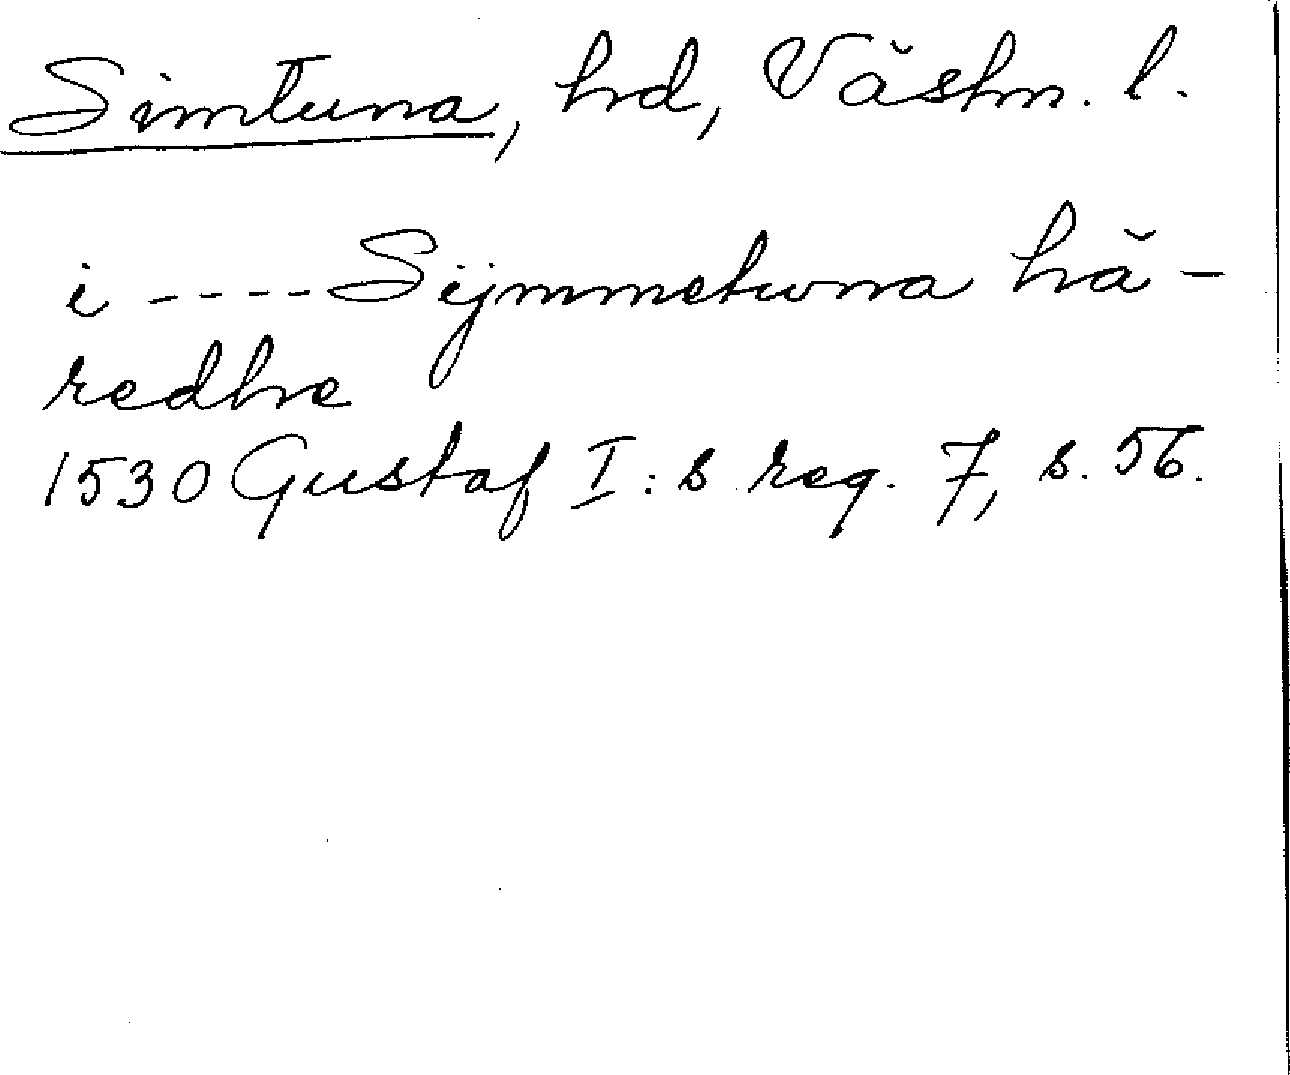 Simtuna, hd, Västm. l.
i ---- Sijmmetwna hä-
redhe
1530 Gustaf I:s reg. 7, s. 56.